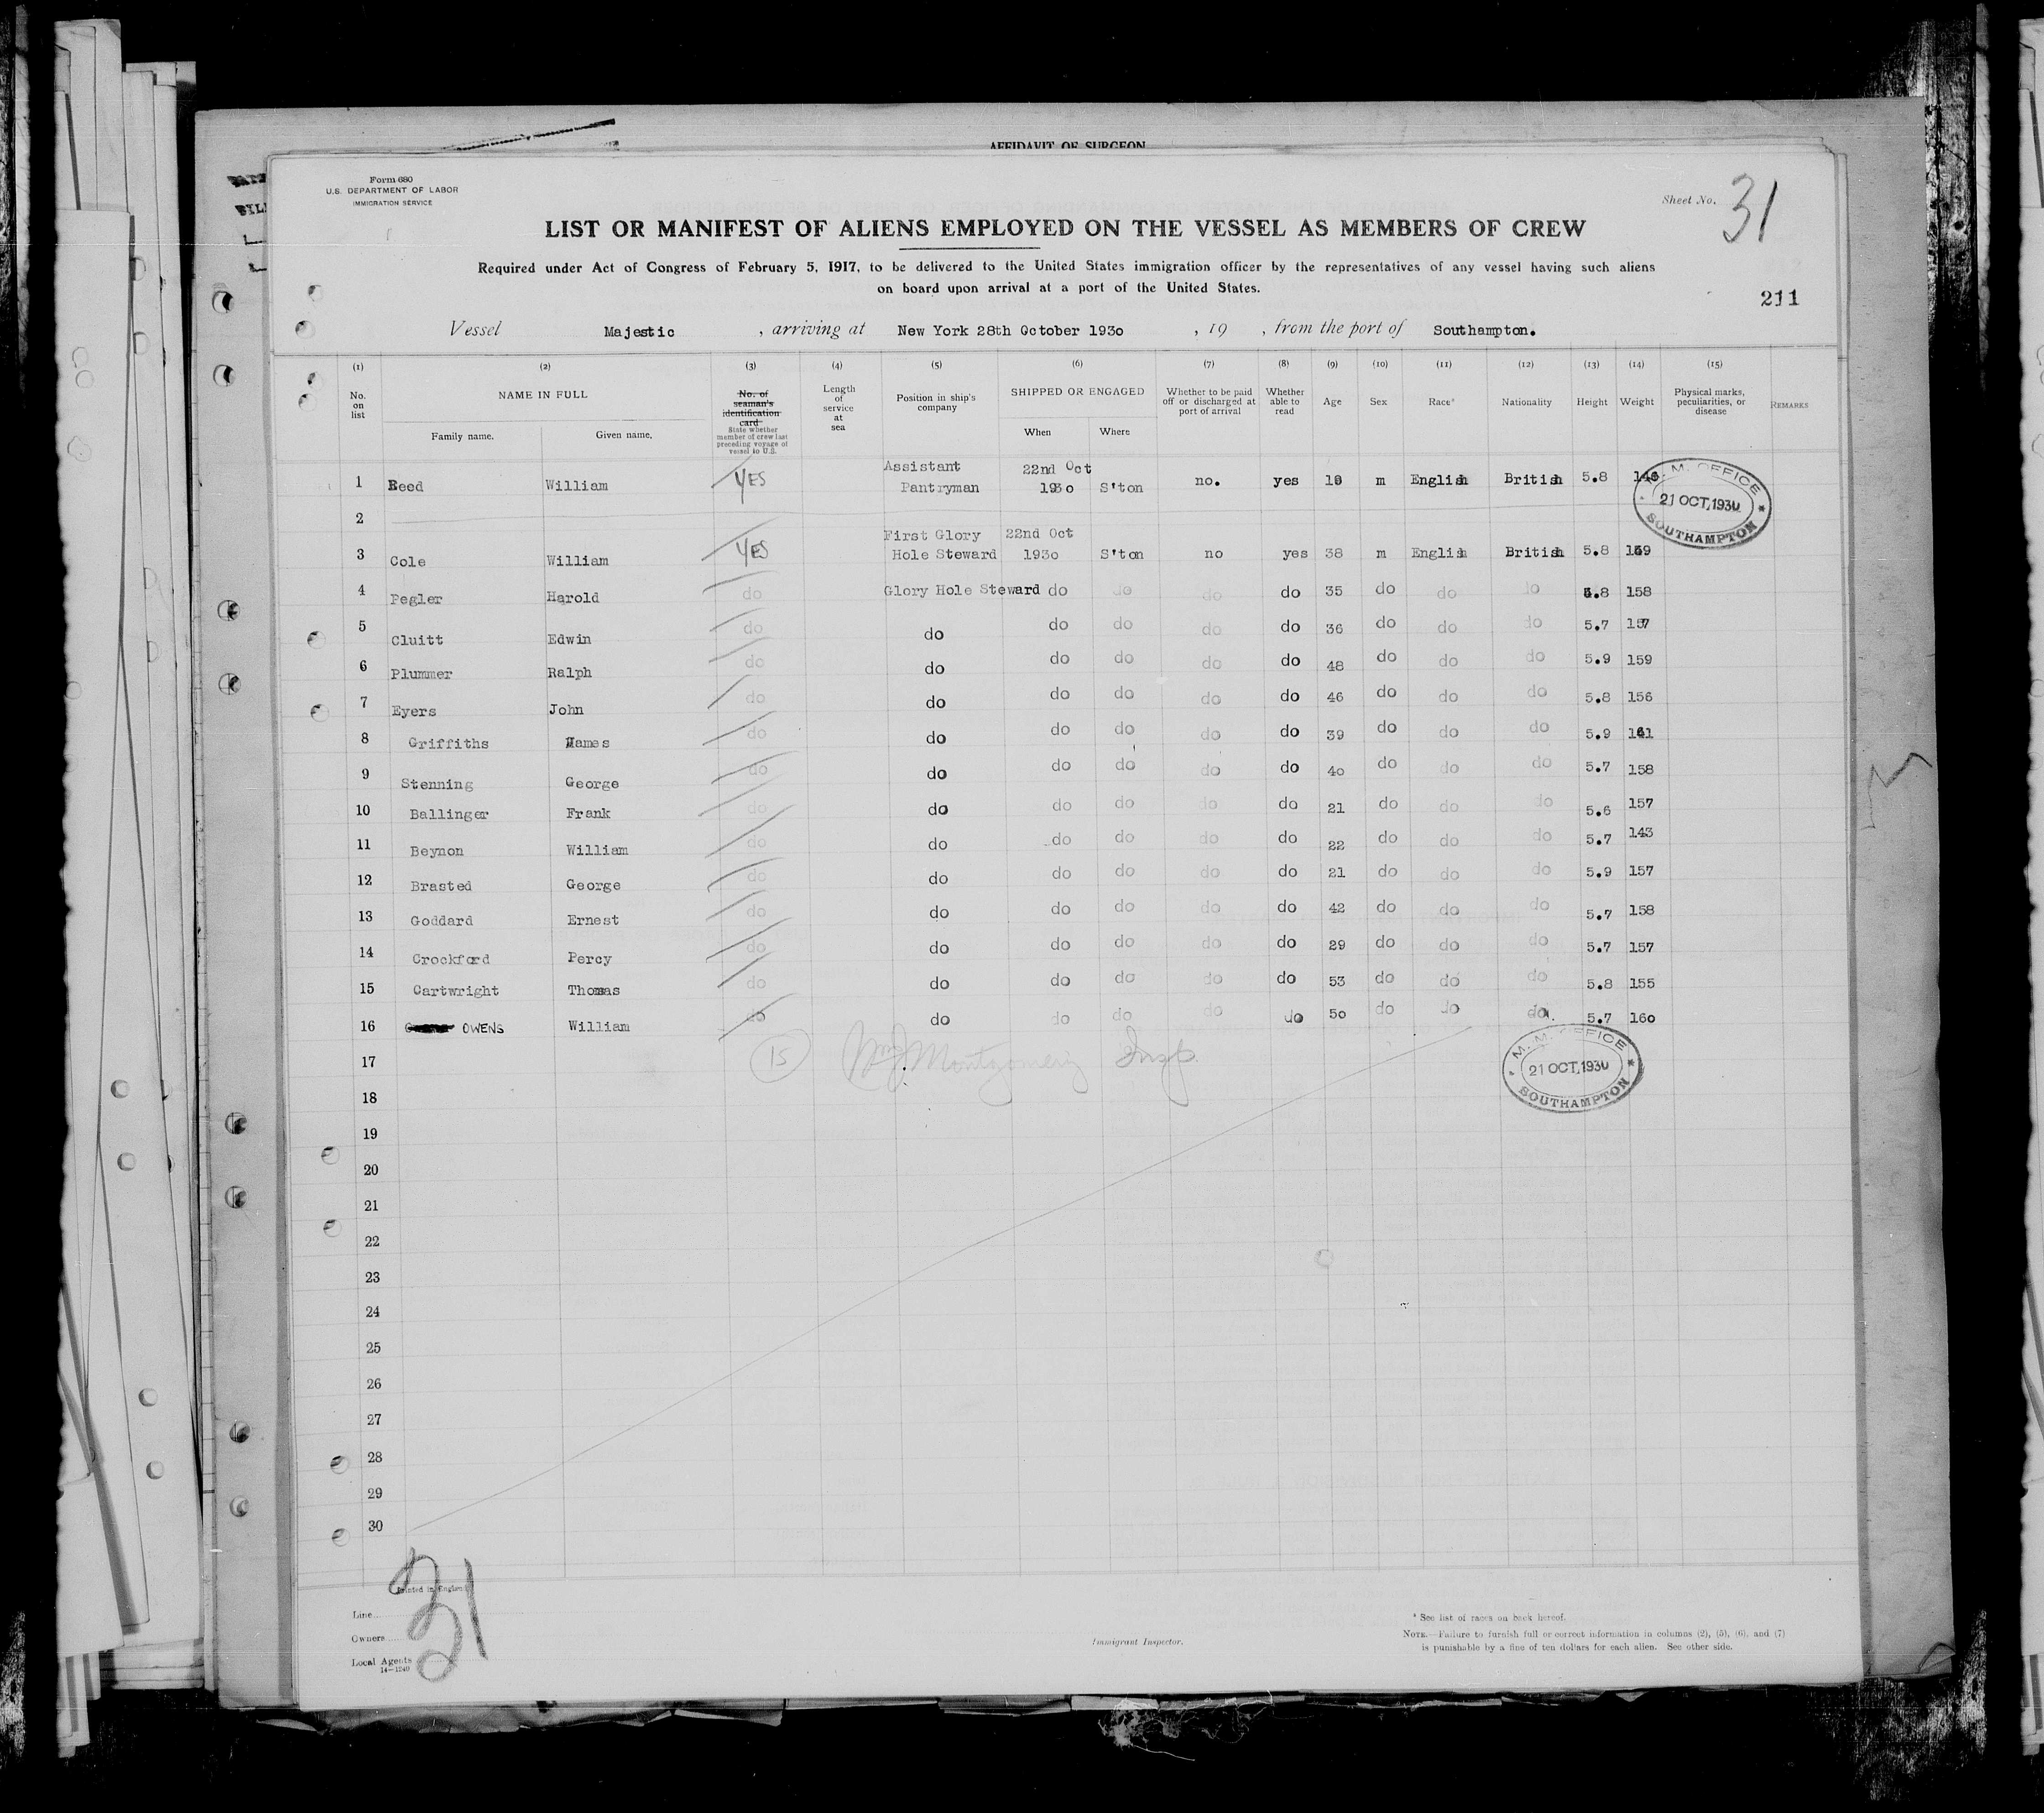 AFFIDAVIT OF SURGEON
Form 680
U.S. DEPARTMENT OF LABOR
IMMIGRATION SERVICE
Sheet No. 31
LIST OR MANIFEST OF ALIENS EMPLOYED ON THE VESSEL AS MEMBERS OF CREW
Required under Act of Congress of February 5, 1917, to be delivered to the United States immigration officer by the representatives of any vessel having such aliens
on board upon arrival at a port of the United States.
211
Vessel Majestic , arriving at New York 28th October 1930 , 19 , from the port of Southampton.
(1) (2) (3) (4) (5) (6) (7) (8) (9) (10) (11) (12) (13) (14) (15)
No. on list NAME IN FULL Family name. Given name. No. of seaman's identification card State whether member of crew last preceding voyage of vessel to U.S. Length of service at sea Position in ship's company SHIPPED OR ENGAGED When Where Whether to be paid off or discharged at port of arrival Whether able to read Age Sex Race* Nationality Height Weight Physical marks, peculiarities, or disease REMARKS
1 Reed William YES Assistant Pantryman 22nd Oct 1930 S'ton no. yes m English British 5.8
M. M. OFFICE 21 OCT. 1930 SOUTHAMPTON
2
3 Cole William YES First Glory Hole Steward 22nd Oct 1930 S'ton no yes 38 m English British 5.8
4 Pegler Harold do Glory Hole Steward do do do do 35 do do do 5.8 158
5 Cluitt Edwin do do do do do do 36 do do do 5.7 157
6 Plummer Ralph do do do do do do 48 do do do 5.9 159
7 Eyers John do do do do do do 46 do do do 5.8 156
8 Griffiths James do do do do do do 39 do do do 5.9
9 Stenning George do do do do do do 40 do do do 5.7 158
10 Ballinger Frank do do do do do do 21 do do do 5.6 157
11 Beynon William do do do do do do 22 do do do 5.7 143
12 Brasted George do do do do do do 21 do do do 5.9 157
13 Goddard Ernest do do do do do do 42 do do do 5.7 158
14 Crockford Percy do do do do do do 29 do do do 5.7 157
15 Cartwright Thomas do do do do do do 53 do do do 5.8 155
16 OWENS William do do do do do do 50 do do do 5.7 160
17 15 Montgomery Insp.
M. M. OFFICE 21 OCT. 1930 SOUTHAMPTON
18
19
20
21
22
23
24
25
26
27
28
29
30
31
Printed in England
Line
Owners
Local Agents
14-1240
Immigrant Inspector.
* See list of races on back hereof.
NOTE.—Failure to furnish full or correct information in columns (2), (5), (6), and (7)
is punishable by a fine of ten dollars for each alien. See other side.